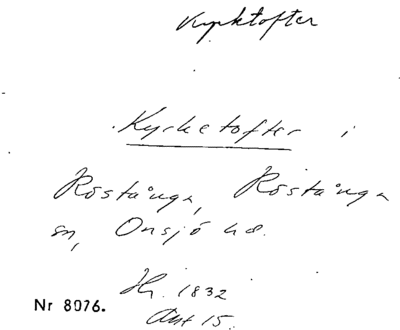 Kyrktofter
Kyrketofter i
Röstånga, Röstånga
sn, Onsjö hd.
Hr. 1832
Akt 15.
Nr 8076.